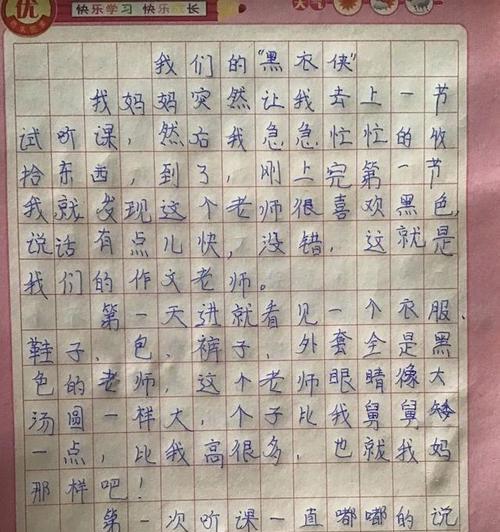 优
快乐学习 快乐成长
天气
我们的“黑衣侠”
我妈妈突然让我去上一节
试听课，然后我急急忙忙的收
拾东西，到了，刚上完第一节
我就发现这个老师很喜欢黑色，
说话有点儿快，没错，这就是
我们的作文老师。
第一天进就看见一个衣服、
鞋子、包、裤子、外套全是黑
色的老师，这个老师眼睛像大
汤圆一样大，个子比我舅舅矮
一点，比我高很多，也就我妈
那样吧！
第一次听课一直嘟嘟的说